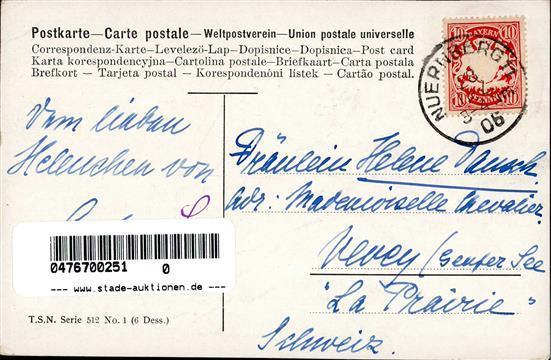 Postkarte—Carte postale—Weltpostverein—Union postale universelle
Correspondenz-Karte—Levelezö-Lap—Dopisnice—Dopisnica—Post card
Karta korespondencyjna—Cartolina postale—Briefkaart—Carta postala
Brefkort — Tarjeta postal — Korespondenční listek — Cartão postal.
BAYERN
10 10
10 PFENNIG 10
NUERNBERG
06
Dem lieben
Helenchen von
Fräulein Helene
Adr: Mademoiselle Chevalier
Vevey (Genfer See
"La Prairie"
Schweiz.
0476700251 0
--- www.stade-auktionen.de ---
T.S.N. Serie 512 No. 1 (6 Dess.)